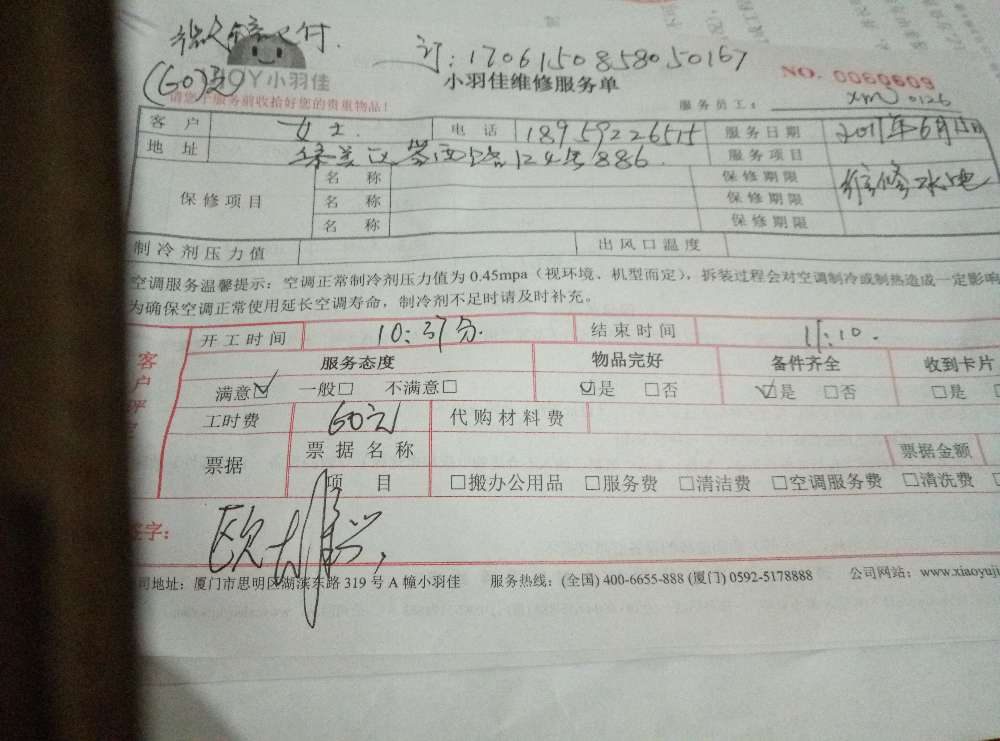 微信支付.
订:170615085805 0167
(60元) JOY小羽佳
小羽佳维修服务单
NO. 0060609
请您于服务前收拾好您的贵重物品!
服务员工: xm 0126
客 户 女士. 电 话 18959226515 服务日期 2017年6月15日
地 址 集美区 西路124号886. 服务项目 维修水电
保修项目 名 称 保修期限
名 称 保修期限
名 称 保修期限
制冷剂压力值 出风口温度
空调服务温馨提示: 空调正常制冷剂压力值为 0.45mpa (视环境、机型而定), 拆装过程会对空调制冷或制热造成一定影响
为确保空调正常使用延长空调寿命, 制冷剂不足时请及时补充。
开工时间 10:37分. 结束时间 11:10.
客户评 服务态度 物品完好 备件齐全 收到卡片
满意☑ 一般□ 不满意□ ☑是 □否 ☑是 □否 □是
工时费 60元 代购材料费
票据 票据名称 票据金额
项 目 □搬办公用品 □服务费 □清洁费 □空调服务费 □清洗费
签字: 欧雄兴
司地址: 厦门市思明区湖滨东路 319 号 A 幢小羽佳 服务热线: (全国) 400-6655-888 (厦门) 0592-5178888 公司网站: www.xiaoyuji